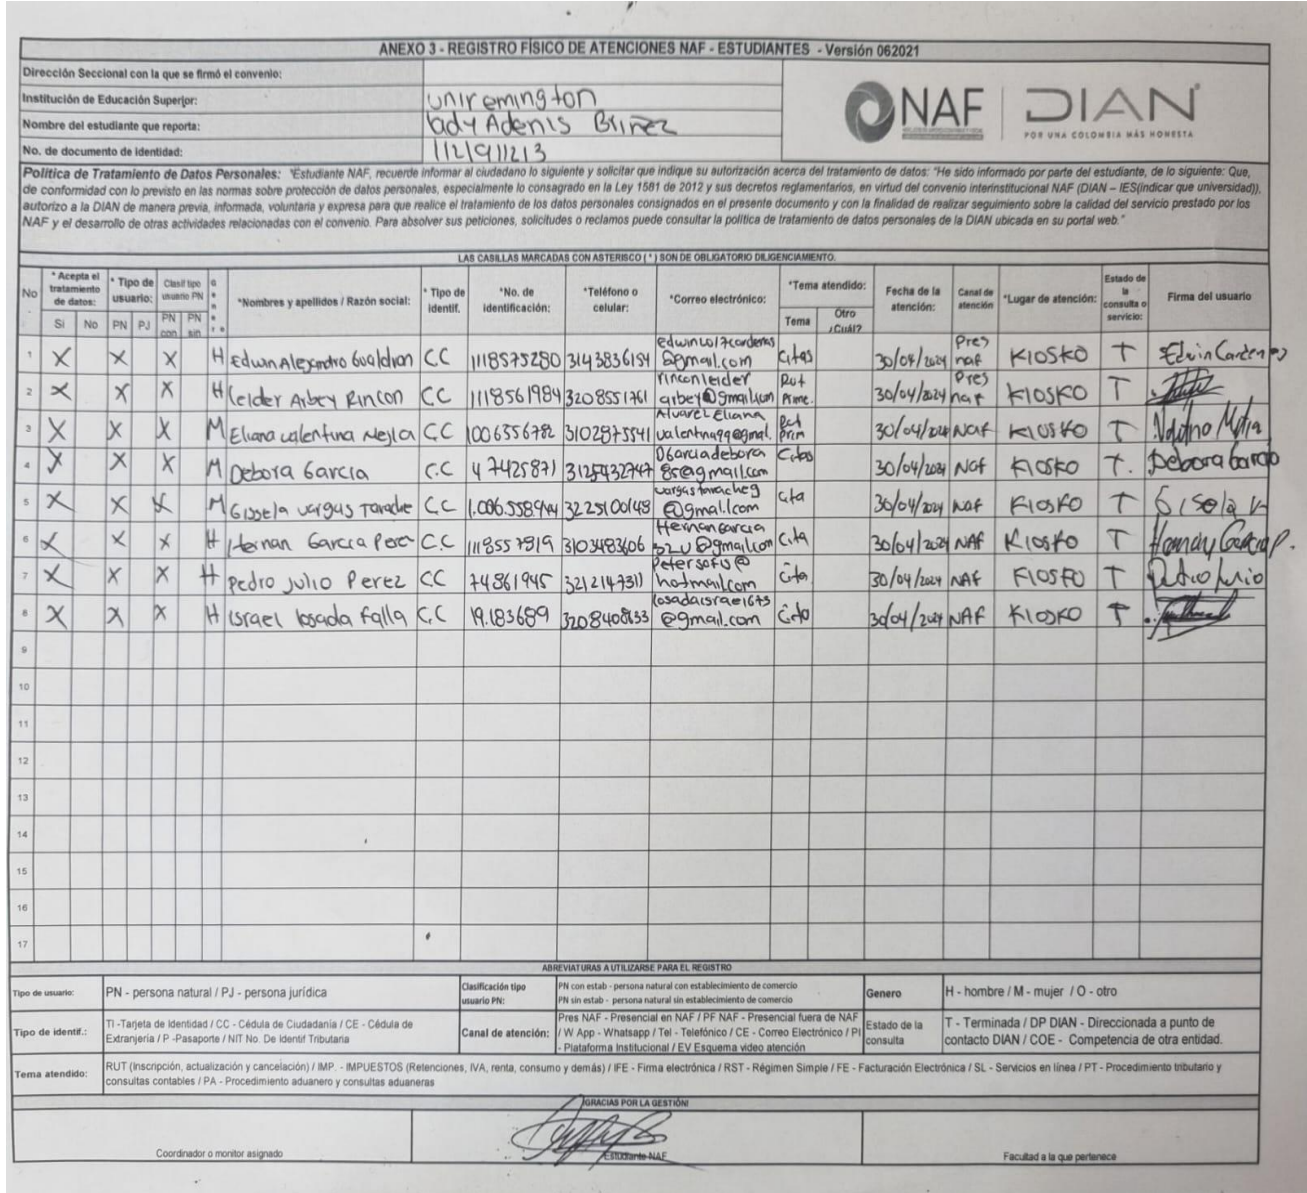 ANEXO 3 - REGISTRO FÍSICO DE ATENCIONES NAF - ESTUDIANTES - Versión 062021
Dirección Seccional con la que se firmó el convenio:
Institución de Educación Superior: uniremington
Nombre del estudiante que reporta: lady Adenis Briñez
No. de documento de identidad:
NAF DIAN
POR UNA COLOMBIA MÁS HONESTA
Política de Tratamiento de Datos Personales: "Estudiante NAF, recuerde informar al ciudadano lo siguiente y solicitar que indique su autorización acerca del tratamiento de datos: "He sido informado por parte del estudiante, de lo siguiente: Que,
de conformidad con lo previsto en las normas sobre protección de datos personales, especialmente lo consagrado en la Ley 1581 de 2012 y sus decretos reglamentarios, en virtud del convenio interinstitucional NAF (DIAN – IES(indicar que universidad)),
autorizo a la DIAN de manera previa, informada, voluntaria y expresa para que realice el tratamiento de los datos personales consignados en el presente documento y con la finalidad de realizar seguimiento sobre la calidad del servicio prestado por los
NAF y el desarrollo de otras actividades relacionadas con el convenio. Para absolver sus peticiones, solicitudes o reclamos puede consultar la política de tratamiento de datos personales de la DIAN ubicada en su portal web."
LAS CASILLAS MARCADAS CON ASTERISCO ( * ) SON DE OBLIGATORIO DILIGENCIAMIENTO.
No * Acepta el tratamiento de datos: * Tipo de usuario: Clasif tipo usuario PN *Nombres y apellidos / Razón social: * Tipo de identif. *No. de identificación: *Teléfono o celular: *Correo electrónico: *Tema atendido: Fecha de la atención: Canal de atención *Lugar de atención: Estado de la consulta o servicio: Firma del usuario
Si No PN PJ PN con PN sin Tema Otro ¿Cuál?
1 X X X H Edwin Alejandro Gualdron C.C 1118575280 3143836154 @gmail.com Citas 30/04/2024 Pres naf KIOSKO T Edwin Cardenas
2 X X X H leider Arbey Rincon CC 1118561984 3208551761 rinconleider arbey@gmail.com Rut Prime. 30/04/2024 Pres naf KIOSKO T
3 X X X M Eliana valentina C.C 1006556782 3102875541 Rut prim 30/04/2024 Naf KIOSKO T
4 X X X M Debora Garcia C.C 47425871 3125432747 DGarciadebora 85@gmail.com Citas 30/04/2024 Naf KIOSKO T. Debora Garcia
5 X X X M Gissela vargas Tarache C.C 1.006.558.944 3225100148 @gmail.com cita 30/04/2024 Naf KIOSKO T Gisela V
6 X X X H Hernan Garcia Perez C.C 1118557519 3103483606 Hernangarcia 520@gmail.com Cita 30/04/2024 NAF KIOSKO T
7 X X X H Pedro Julio Perez CC 74861945 3212147311 hotmail.com Cita 30/04/2024 NAF KIOSKO T Pedro Julio
8 X X X H israel losada falla C.C 19.183689 3208408633 losadaisrael673 @gmail.com Cita 30/04/2024 NAF KIOSKO T
9
10
11
12
13
14
15
16
17
ABREVIATURAS A UTILIZARSE PARA EL REGISTRO
Tipo de usuario: PN - persona natural / PJ - persona jurídica
Clasificación tipo usuario PN: PN con estab - persona natural con establecimiento de comercio
PN sin estab - persona natural sin establecimiento de comercio
Genero H - hombre / M - mujer / O - otro
Tipo de identif.: TI -Tarjeta de Identidad / CC - Cédula de Ciudadanía / CE - Cédula de
Extranjería / P -Pasaporte / NIT No. De Identif Tributaria
Canal de atención: Pres NAF - Presencial en NAF / PF NAF - Presencial fuera de NAF
/ W App - Whatsapp / Tel - Telefónico / CE - Correo Electrónico / PI
- Plataforma Institucional / EV Esquema video atención
Estado de la consulta T - Terminada / DP DIAN - Direccionada a punto de
contacto DIAN / COE - Competencia de otra entidad.
Tema atendido: RUT (Inscripción, actualización y cancelación) / IMP. - IMPUESTOS (Retenciones, IVA, renta, consumo y demás) / IFE - Firma electrónica / RST - Régimen Simple / FE - Facturación Electrónica / SL - Servicios en línea / PT - Procedimiento tributario y
consultas contables / PA - Procedimiento aduanero y consultas aduaneras
¡GRACIAS POR LA GESTIÓN!
Coordinador o monitor asignado
Estudiante NAF
Facultad a la que pertenece